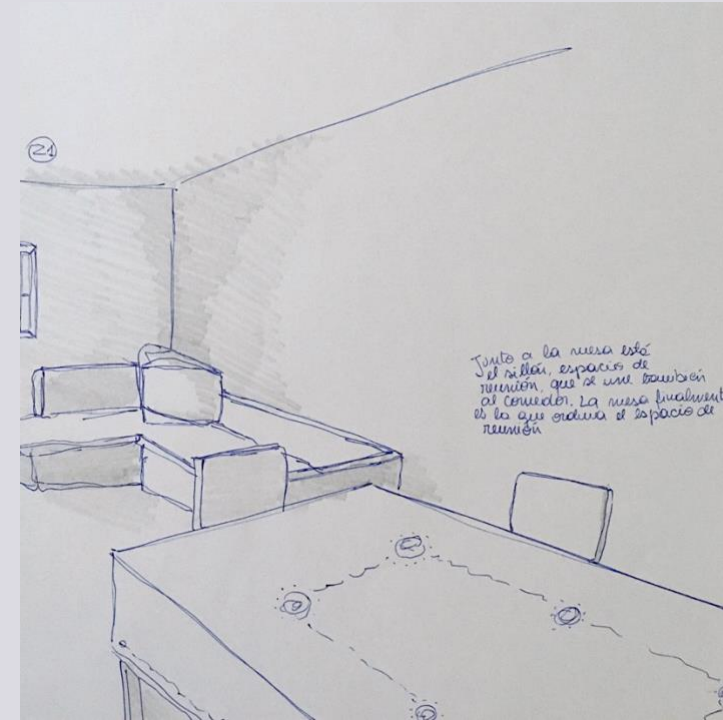 21
Junto a la mesa está
el sillón, espacio de
reunión, que se une también
al comedor. La mesa finalment
es la que ordena el espacio de
reunión